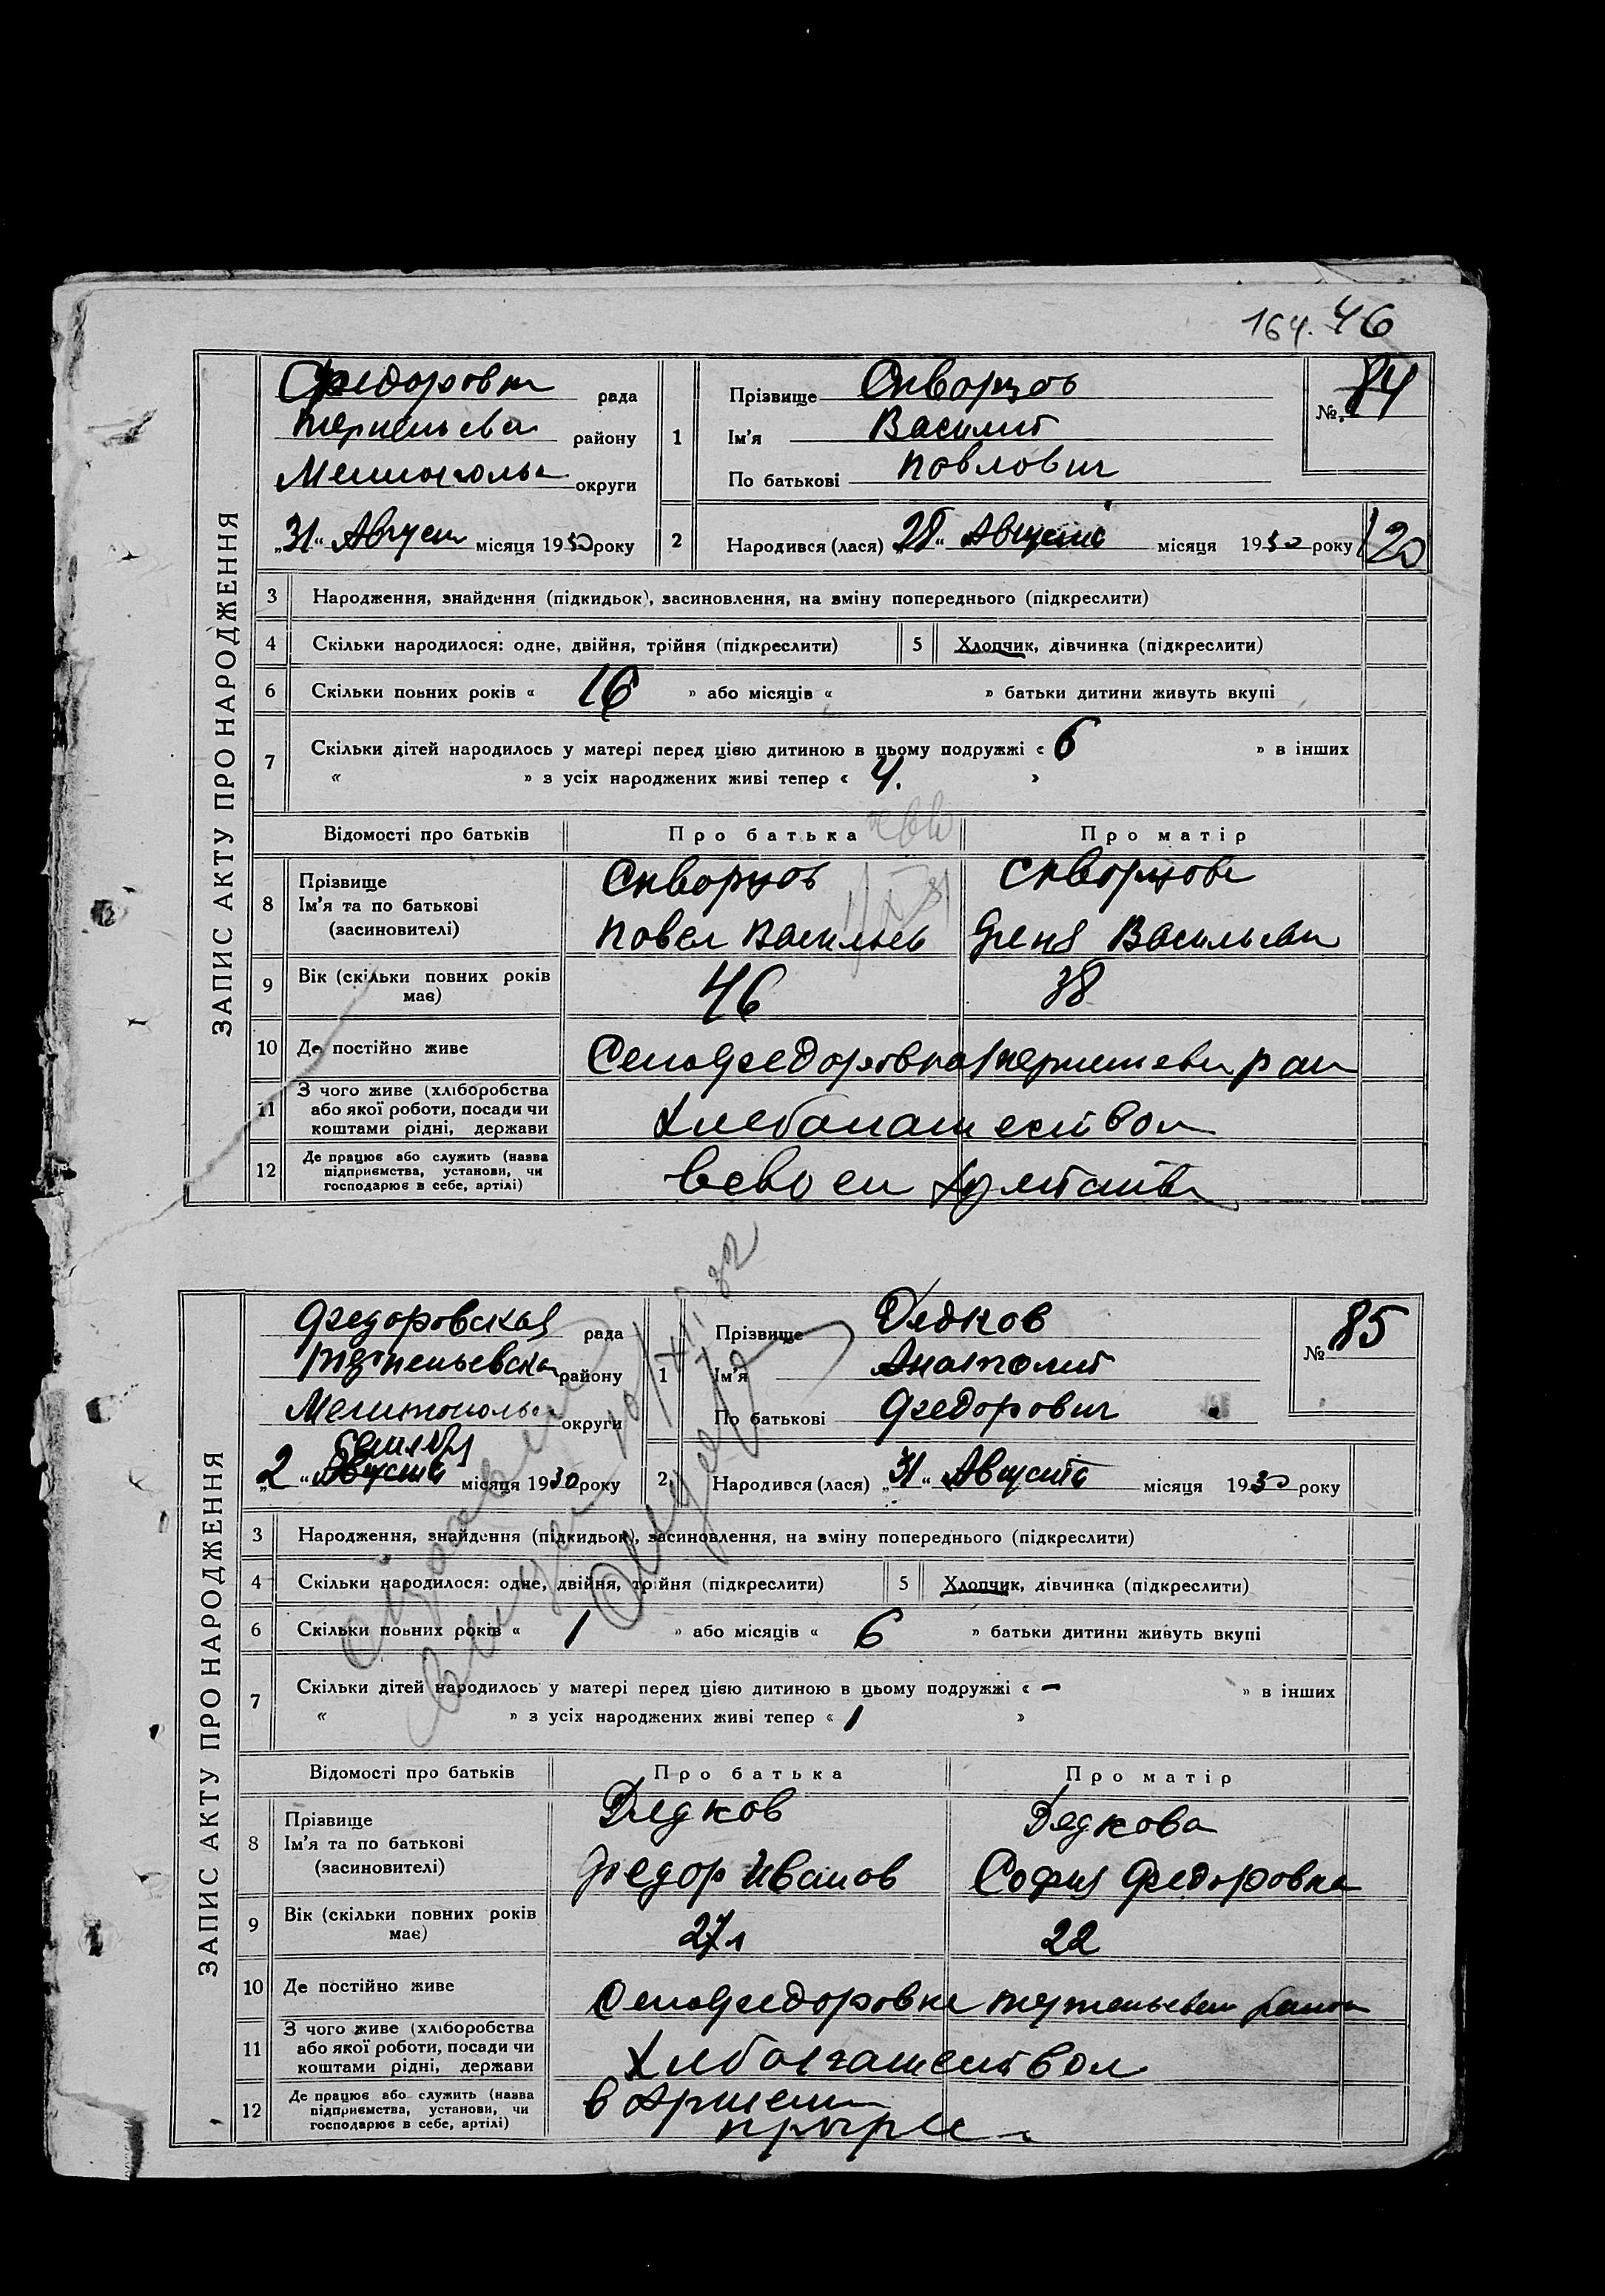 164. 46
ЗАПИС АКТУ ПРО НАРОДЖЕННЯ
рада
району
округи
„31“ місяця 1930 року
1
Прізвище Скворцов
Ім'я Василий
По батькові Повлович
№ 84
2
Народився (лася) „28“ Августа місяця 1930 року
120
3 Народження, знайдення (підкидьок), засиновлення, на зміну попереднього (підкреслити)
4 Скільки народилося: одне, двійня, трійня (підкреслити)
5 Хлопчик, дівчинка (підкреслити)
6 Скільки повних років « 16 » або місяців « » батьки дитини живуть вкупі
7 Скільки дітей народилось у матері перед цією дитиною в цьому подружжі « 6 » в інших
« » з усіх народжених живі тепер « 4. »
Відомості про батьків Про батька Про матір
8 Прізвище
Ім'я та по батькові
(засиновителі)
Скворцов Скворцова
Повел Васильев Васильевн
9 Вік (скільки повних років
має)
46 38
10 Де постійно живе
Село Федоровка
11 З чого живе (хліборобства
або якої роботи, посади чи
коштами рідні, держави
12 Де працює або служить (назва
підприємства, установи, чи
господарює в себе, артілі)
ЗАПИС АКТУ ПРО НАРОДЖЕННЯ
Федоровская рада
району
округи
„2“ місяця 1930 року
1
Прізвище Дядков
Ім'я Анатолий
По батькові Федорович
№ 85
2
Народився (лася) „31“ Августа місяця 1930 року
3 Народження, знайдення (підкидьок), засиновлення, на зміну попереднього (підкреслити)
4 Скільки народилося: одне, двійня, трійня (підкреслити)
5 Хлопчик, дівчинка (підкреслити)
6 Скільки повних років « 1 » або місяців « 6 » батьки дитини живуть вкупі
7 Скільки дітей народилось у матері перед цією дитиною в цьому подружжі « – » в інших
« » з усіх народжених живі тепер « 1 »
Відомості про батьків Про батька Про матір
8 Прізвище
Ім'я та по батькові
(засиновителі)
Дядков Дядкова
Федор Иванов София Федоровна
9 Вік (скільки повних років
має)
27 л 22
10 Де постійно живе
Село Федоровка
11 З чого живе (хліборобства
або якої роботи, посади чи
коштами рідні, держави
12 Де працює або служить (назва
підприємства, установи, чи
господарює в себе, артілі)